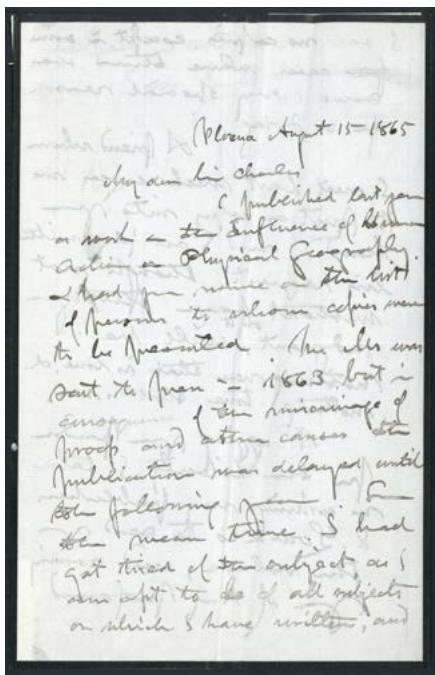 August 15 - 1865
My dear Sir Charles
I published last year
a work on the Influence of Human
Action on Physical Geography.
I had your name on the list
of persons to whom copies were
to be presented. The Ms was
sent to press in 1863 but in
consequence of the miscarriage of
proofs and other causes the
publication was delayed until
the following year. In
the mean time, I had
got tired of the subject, as I
am apt to be of all subjects
on which I have written, and